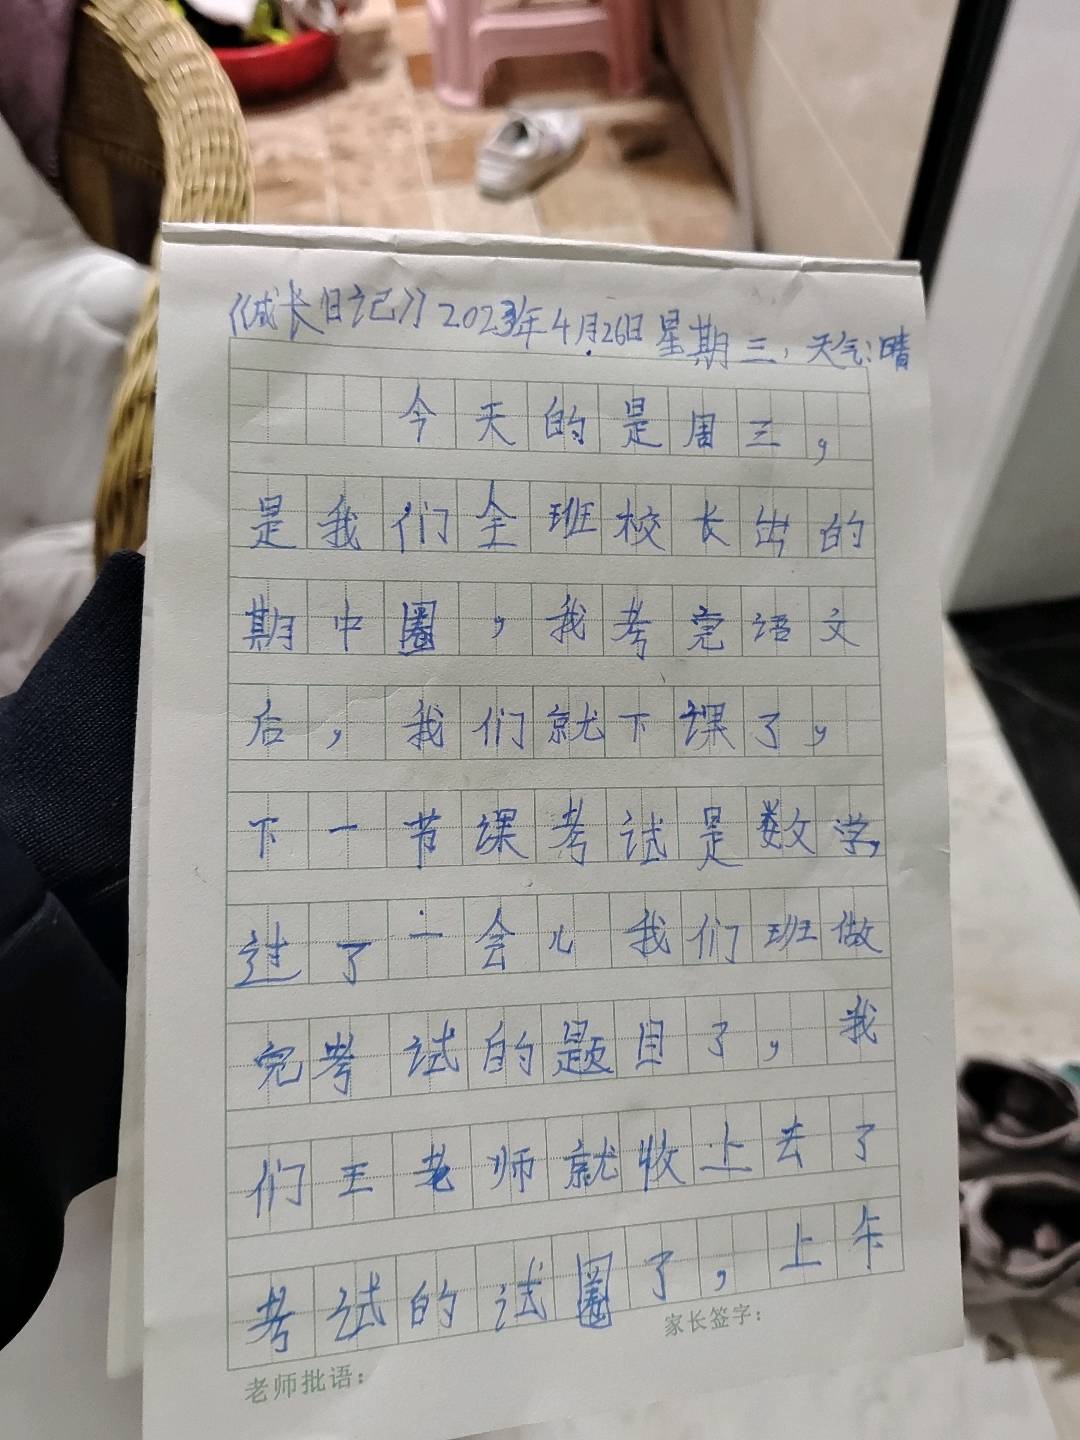 《成长日记》2023年4月26日星期三,天气:晴
今天的是周三，
是我们全班校长出的
期中圈，我考完语文
后，我们就下课了，
下一节课考试是数学，
过了一会儿我们班做
完考试的题目了，我
们王老师就收上去了
考试的试圈了，上午
家长签字：
老师批语：